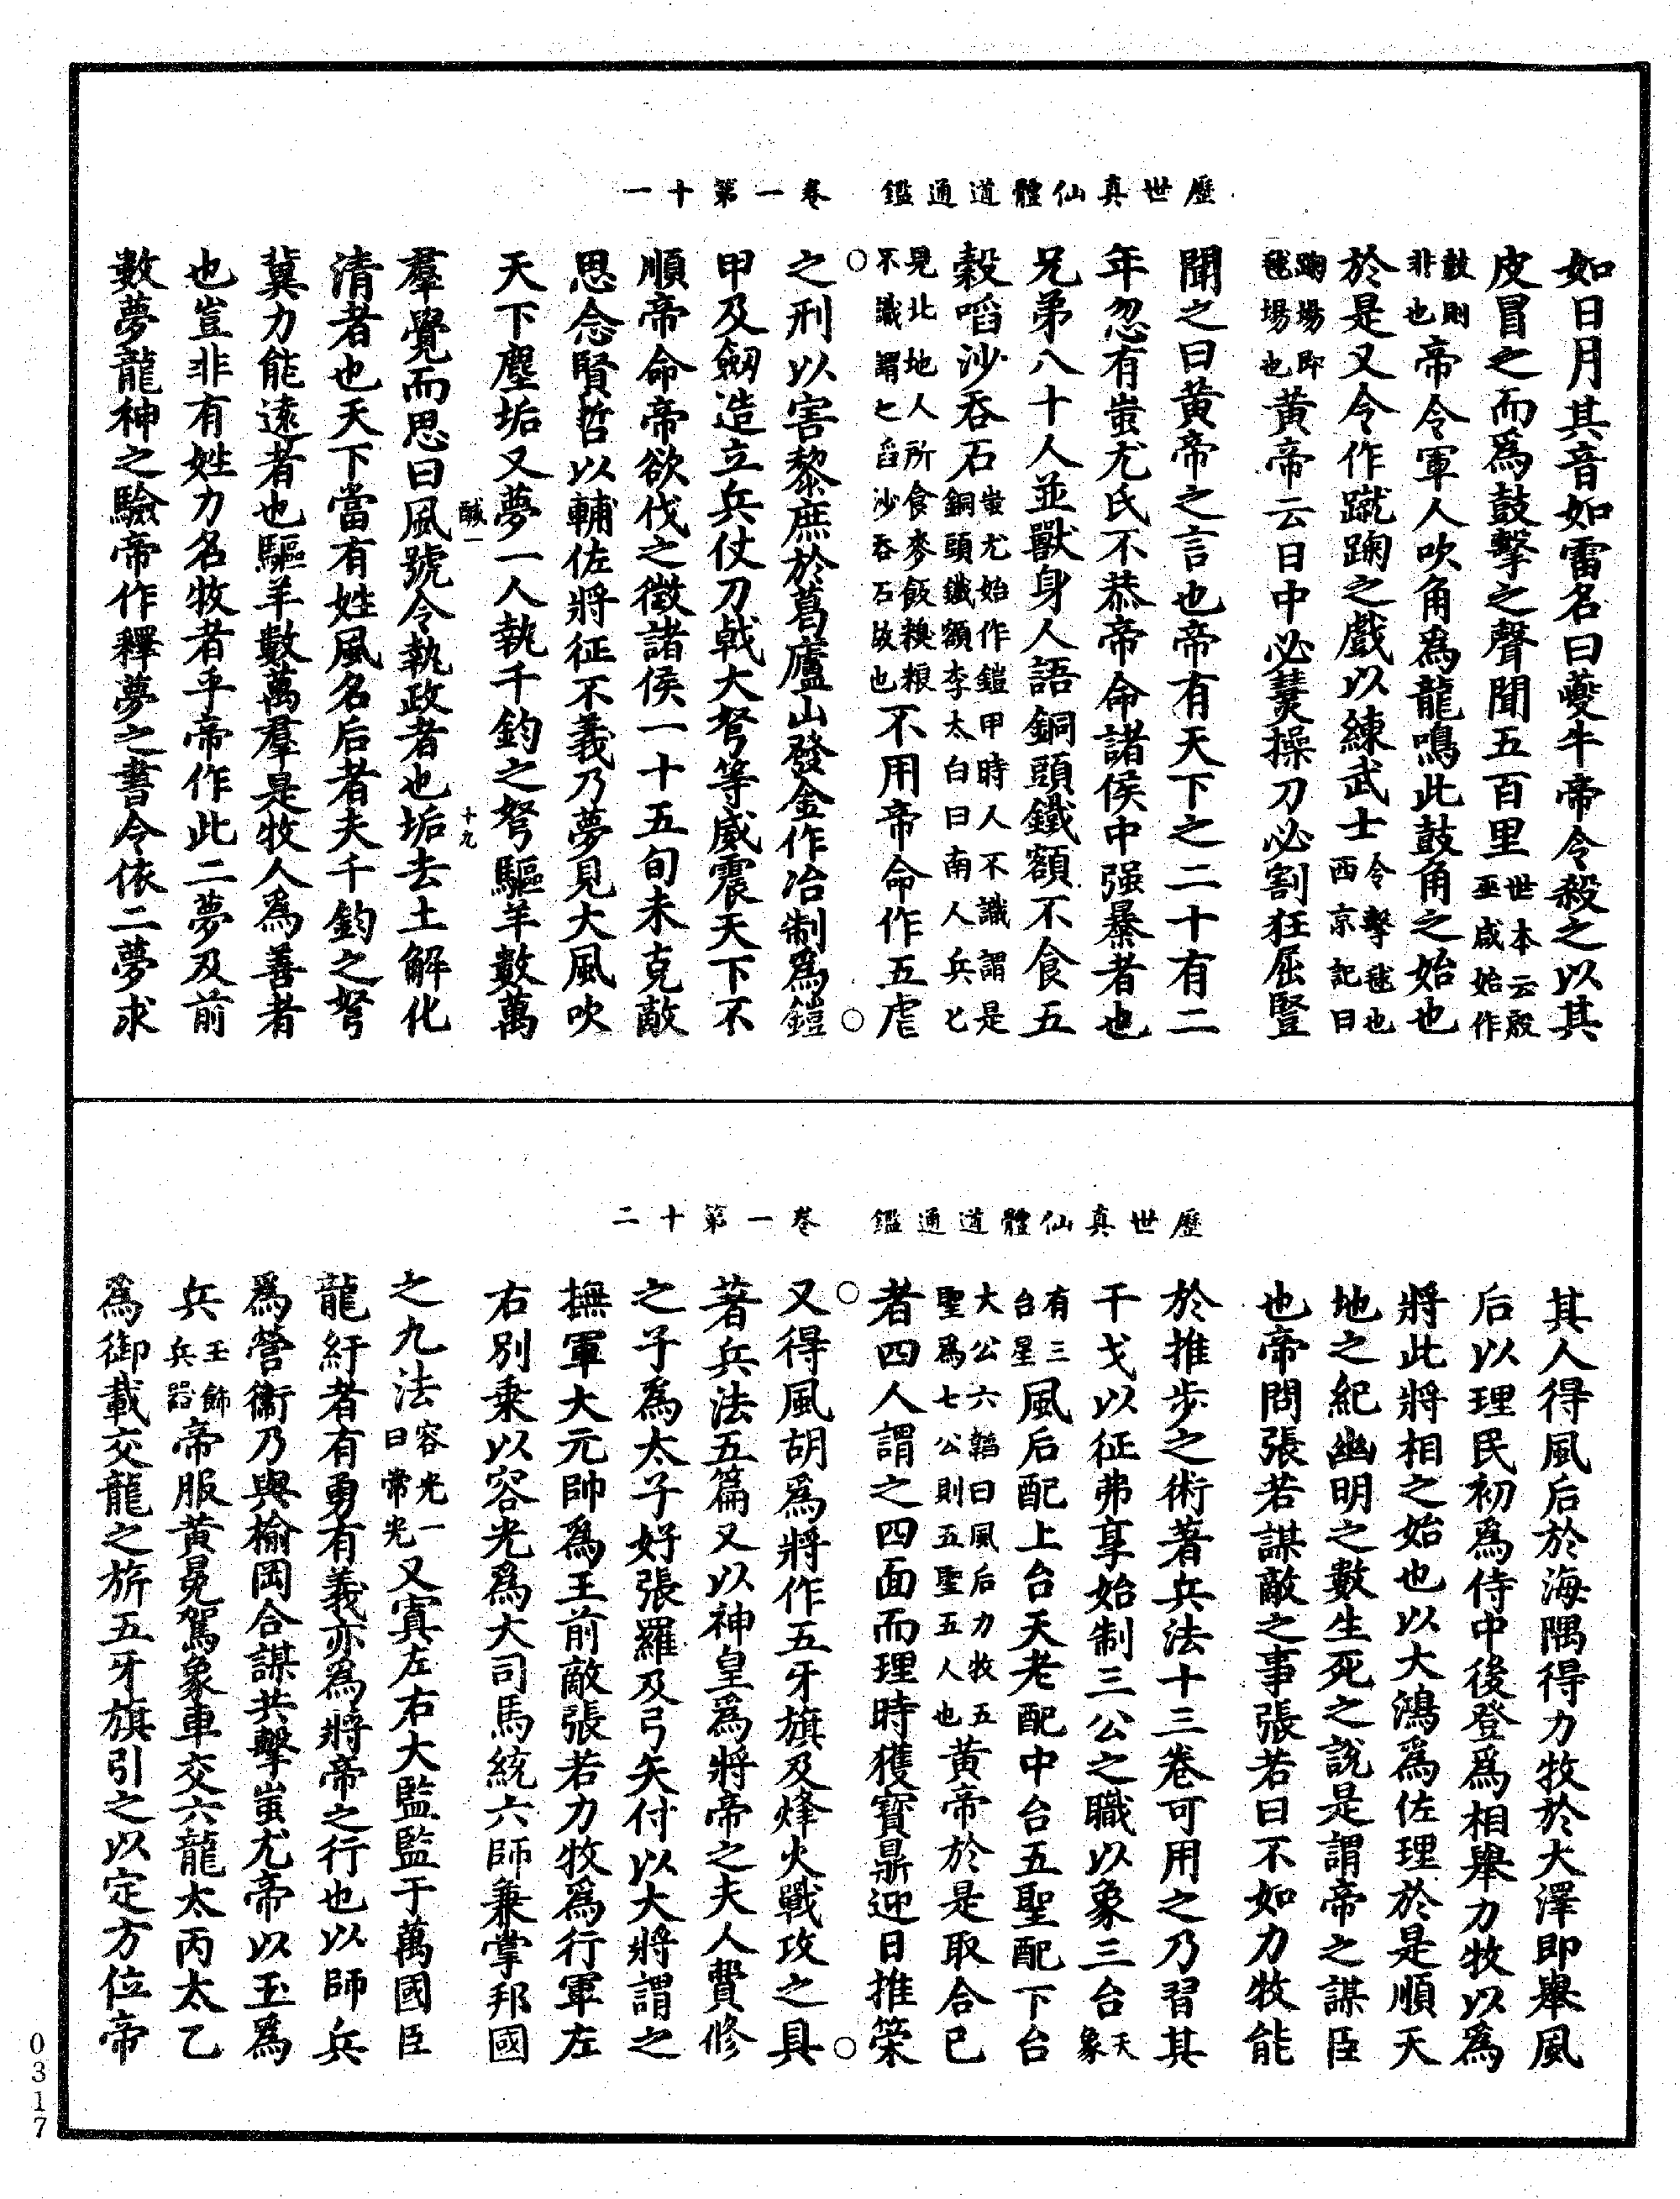 歷世真仙體道通鑑　卷一第十一
如日月其音如雷名曰夔牛帝令殺之以其
皮冒之而為鼓擊之聲聞五百里世本云殷巫咸始作
鼓則非也帝令軍人吹角為龍鳴此鼓角之始也
於是又令作蹴踘之戲以練武士今擊毬也西京記曰
踘場即毬場也黃帝云日中必熭操刀必割狂屈豎
聞之曰黃帝之言也帝有天下之二十有二
年忽有蚩尤氏不恭帝命諸侯中强暴者也
兄弟八十人並獸身人語銅頭鐵額不食五
穀啗沙吞石蚩尤始作鎧甲時人不識謂是銅頭鐵額李太白曰南人兵士
見北地人所食麥飯糗粮不識謂之啗沙吞石故也不用帝命作五虐
之刑以害黎庶於葛盧山發金作冶制為鎧
甲及劒造立兵仗刀戟大弩等威震天下不
順帝命帝欲伐之徵諸侯一十五旬未克敵
思念賢哲以輔佐將征不義乃夢見大風吹
天下塵垢又夢一人執千鈞之弩驅羊數萬
鹹一　十九
羣覺而思曰風號令執政者也垢去土解化
清者也天下當有姓風名后者夫千鈞之弩
冀力能遠者也驅羊數萬羣是牧人為善者
也豈非有姓力名牧者乎帝作此二夢及前
數夢龍神之驗帝作釋夢之書令依二夢求
歷世真仙體道通鑑　卷一第十二
其人得風后於海隅得力牧於大澤即舉風
后以理民初為侍中後登為相舉力牧以為
將此將相之始也以大鴻為佐理於是順天
地之紀幽明之數生死之說是謂帝之謀臣
也帝問張若謀敵之事張若曰不如力牧能
於推步之術著兵法十三卷可用之乃習其
干戈以征弗享始制三公之職以象三台天象
有三台星風后配上台天老配中台五聖配下台
太公六韜曰風后力牧五聖為七公則五聖五人也黃帝於是取合已
者四人謂之四面而理時獲寶鼎迎日推筞
又得風胡為將作五牙旗及烽火戰攻之具
著兵法五篇又以神皇為將帝之夫人費修
之子為太子好張羅及弓矢付以大將謂之
撫軍大元帥為王前敵張若力牧為行軍左
右別乘以容光為大司馬統六師兼掌邦國
之九法容光一曰常光又寘左右大監監于萬國臣
龍紆者有勇有義亦為將帝之行也以師兵
為營衞乃與榆岡合謀共擊蚩尤帝以玉為
兵玉飾兵器帝服黃冕駕象車交六龍太丙太乙
為御載交龍之旂五牙旗引之以定方位帝
0317